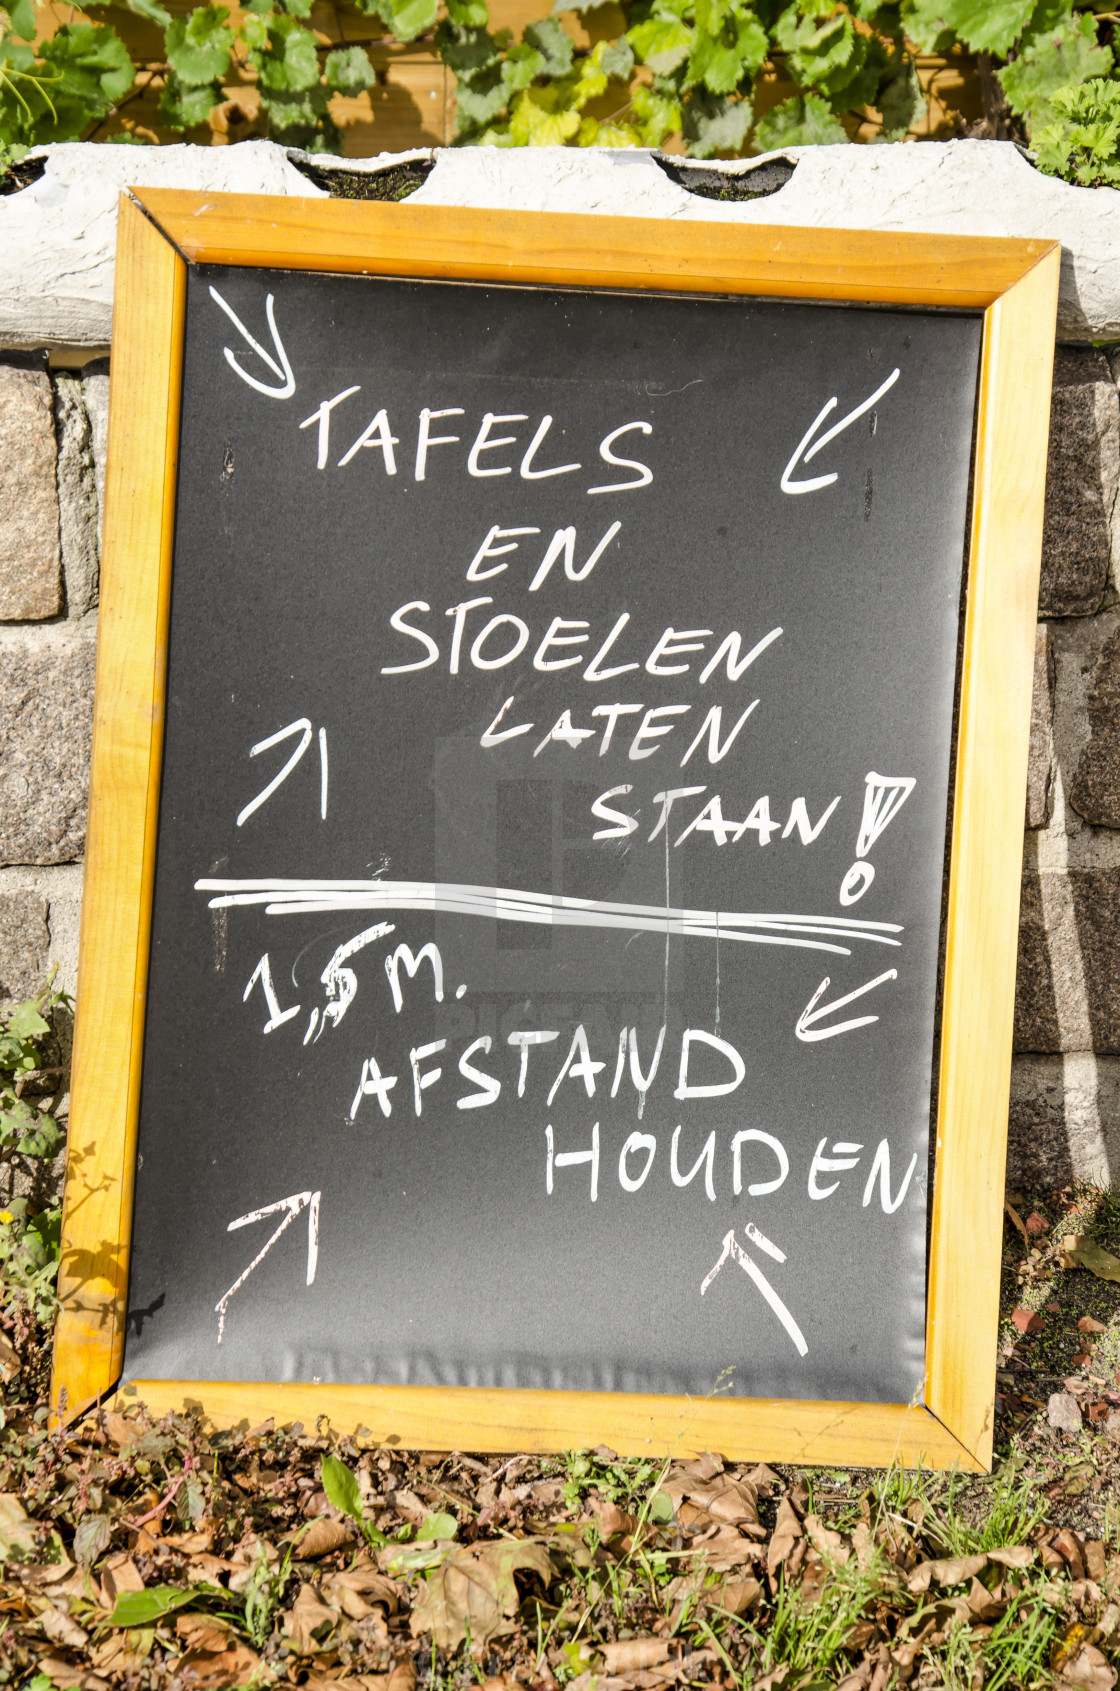 TAFELS
EN
STOELEN
LATEN
STAAN!
1,5 M.
AFSTAND
HOUDEN